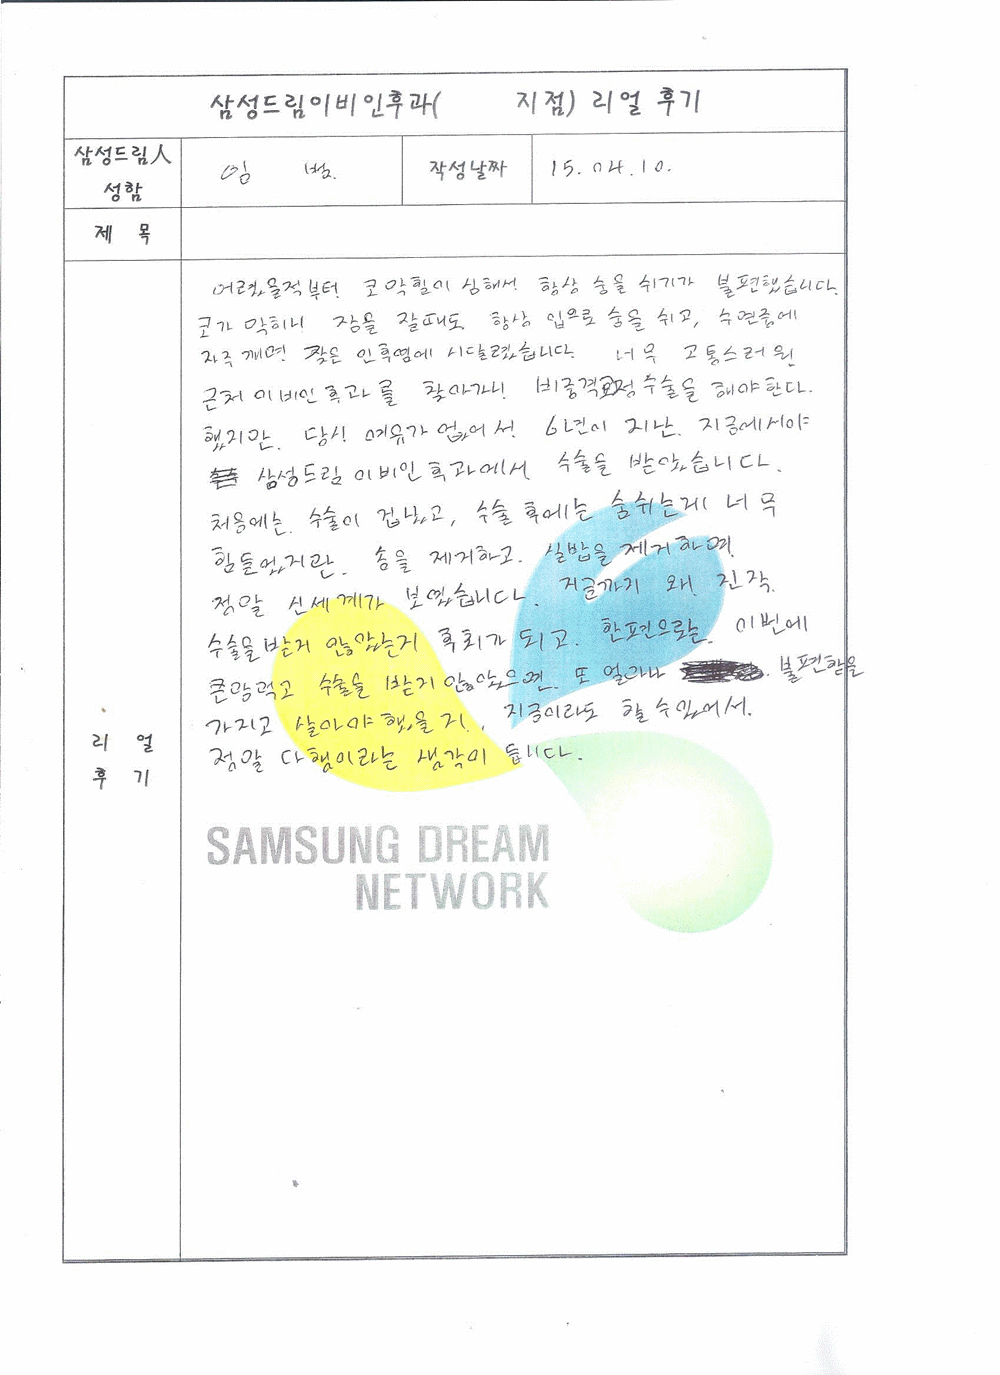 삼성드림이비인후과(      지점) 리얼 후기
삼성드림人
성함
임 범.
작성날짜
15. 04. 10.
제 목
어렸을적부터 코막힘이 심해서 항상 숨을 쉬기가 불편했습니다.
코가 막히니 잠을 잘때도 항상 입으로 숨을 쉬고, 수면중에
자주 깨며 잦은 인후염에 시달렸습니다 너무 고통스러워
근처 이비인후과를 찾아가니 비중격교정수술을 해야한다.
했지만. 당시 여유가 없어서 6년이 지난. 지금에서야
삼성드림 이비인후과에서 수술을 받았습니다.
처음에는 수술이 겁났고, 수술 후에는 숨쉬는게 너무
힘들었지만. 솜을 제거하고. 실밥을 제거하며.
정말 신세계가 보였습니다. 지금까지 왜 진작.
수술을 받지 않았는지 후회가 되고. 한편으로는 이번에
큰맘먹고 수술을 받지 않았으면. 또 얼마나 불편함을
가지고 살아야 했을지, 지금이라도 할 수 있어서.
정말 다행이라는 생각이 듭니다.
리 얼
후 기
SAMSUNG DREAM
NETWORK